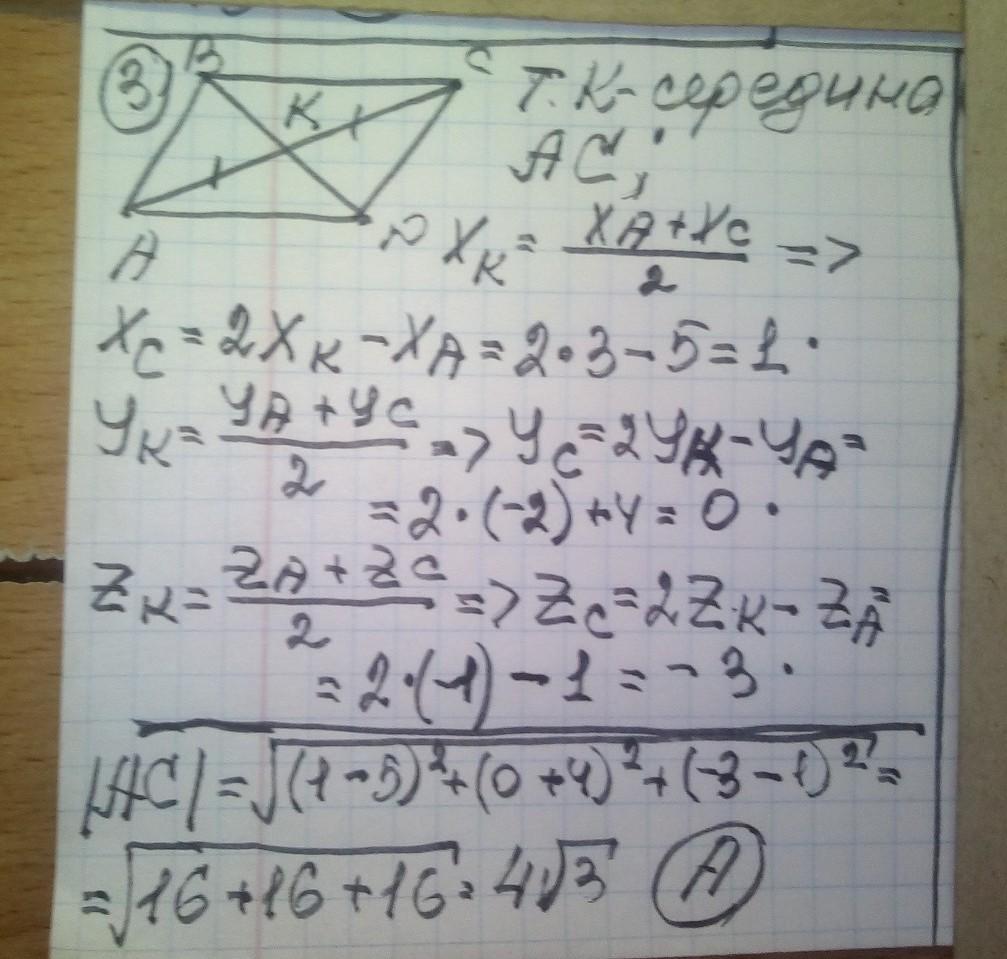 3
B C
K
A D
Т.К-середина
AC;
XK = (XA + XC)/2 =>
XC = 2XK - XA = 2·3 - 5 = 1.
YK = (YA + YC)/2 => YC = 2YK - YA =
= 2·(-2) + 4 = 0.
ZK = (ZA + ZC)/2 => ZC = 2ZK - ZA =
= 2·(-1) - 1 = -3.
|AC| = √((1-5)² + (0+4)² + (-3-1)²) =
= √(16 + 16 + 16) = 4√3 A